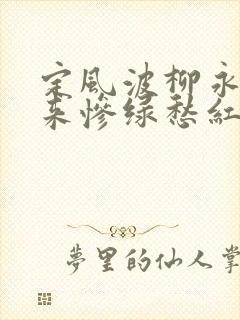 定風波柳永
来惨绿愁红
夢里的仙人掌